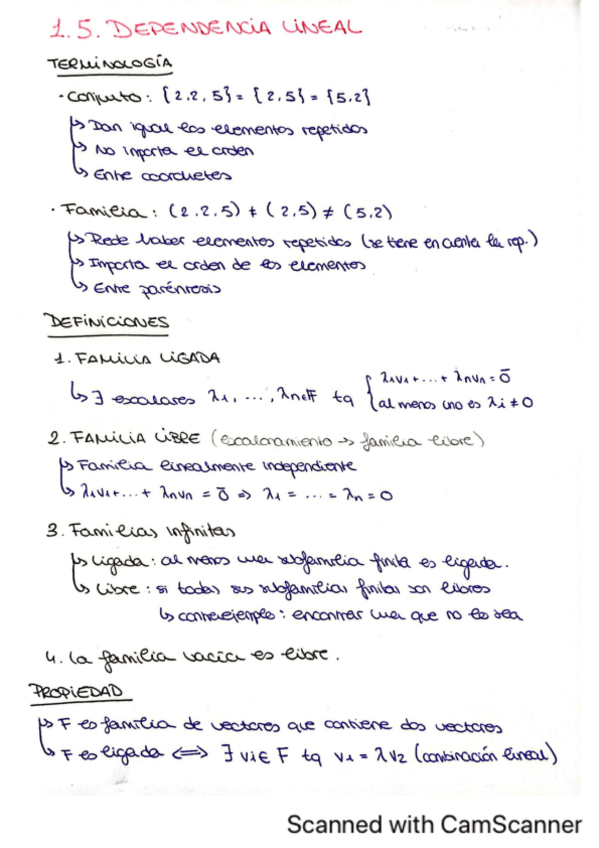 1.5. DEPENDENCIA LINEAL
TERMINOLOGÍA
· Conjunto: {2,2,5} = {2,5} = {5,2}
↳ Dan igual los elementos repetidos
↳ No importa el orden
↳ Entre corchetes
· Familia: (2,2,5) ≠ (2,5) ≠ (5,2)
↳ Puede haber elementos repetidos (se tiene en cuenta la rep.)
↳ Importa el orden de los elementos
↳ Entre paréntesis
DEFINICIONES
1. FAMILIA LIGADA
↳ ∃ escalares λ1, ..., λn∈F tq { λ1v1+...+ λnvn = 0̄
al menos uno es λi ≠ 0
2. FAMILIA LIBRE (escalonamiento → familia libre)
↳ Familia linealmente independiente
↳ λ1v1+...+ λnvn = 0̄ ⇒ λ1 = ... = λn = 0
3. Familias infinitas
↳ Ligada: al menos una subfamilia finita es ligada.
↳ Libre: si todas sus subfamilias finitas son libres
↳ contraejemplo: encontrar una que no lo sea
4. La familia vacía es libre.
PROPIEDAD
↳ F es familia de vectores que contiene dos vectores
↳ F es ligada ⟺ ∃ vi∈ F tq v1 = λv2 (combinación lineal)
Scanned with CamScanner